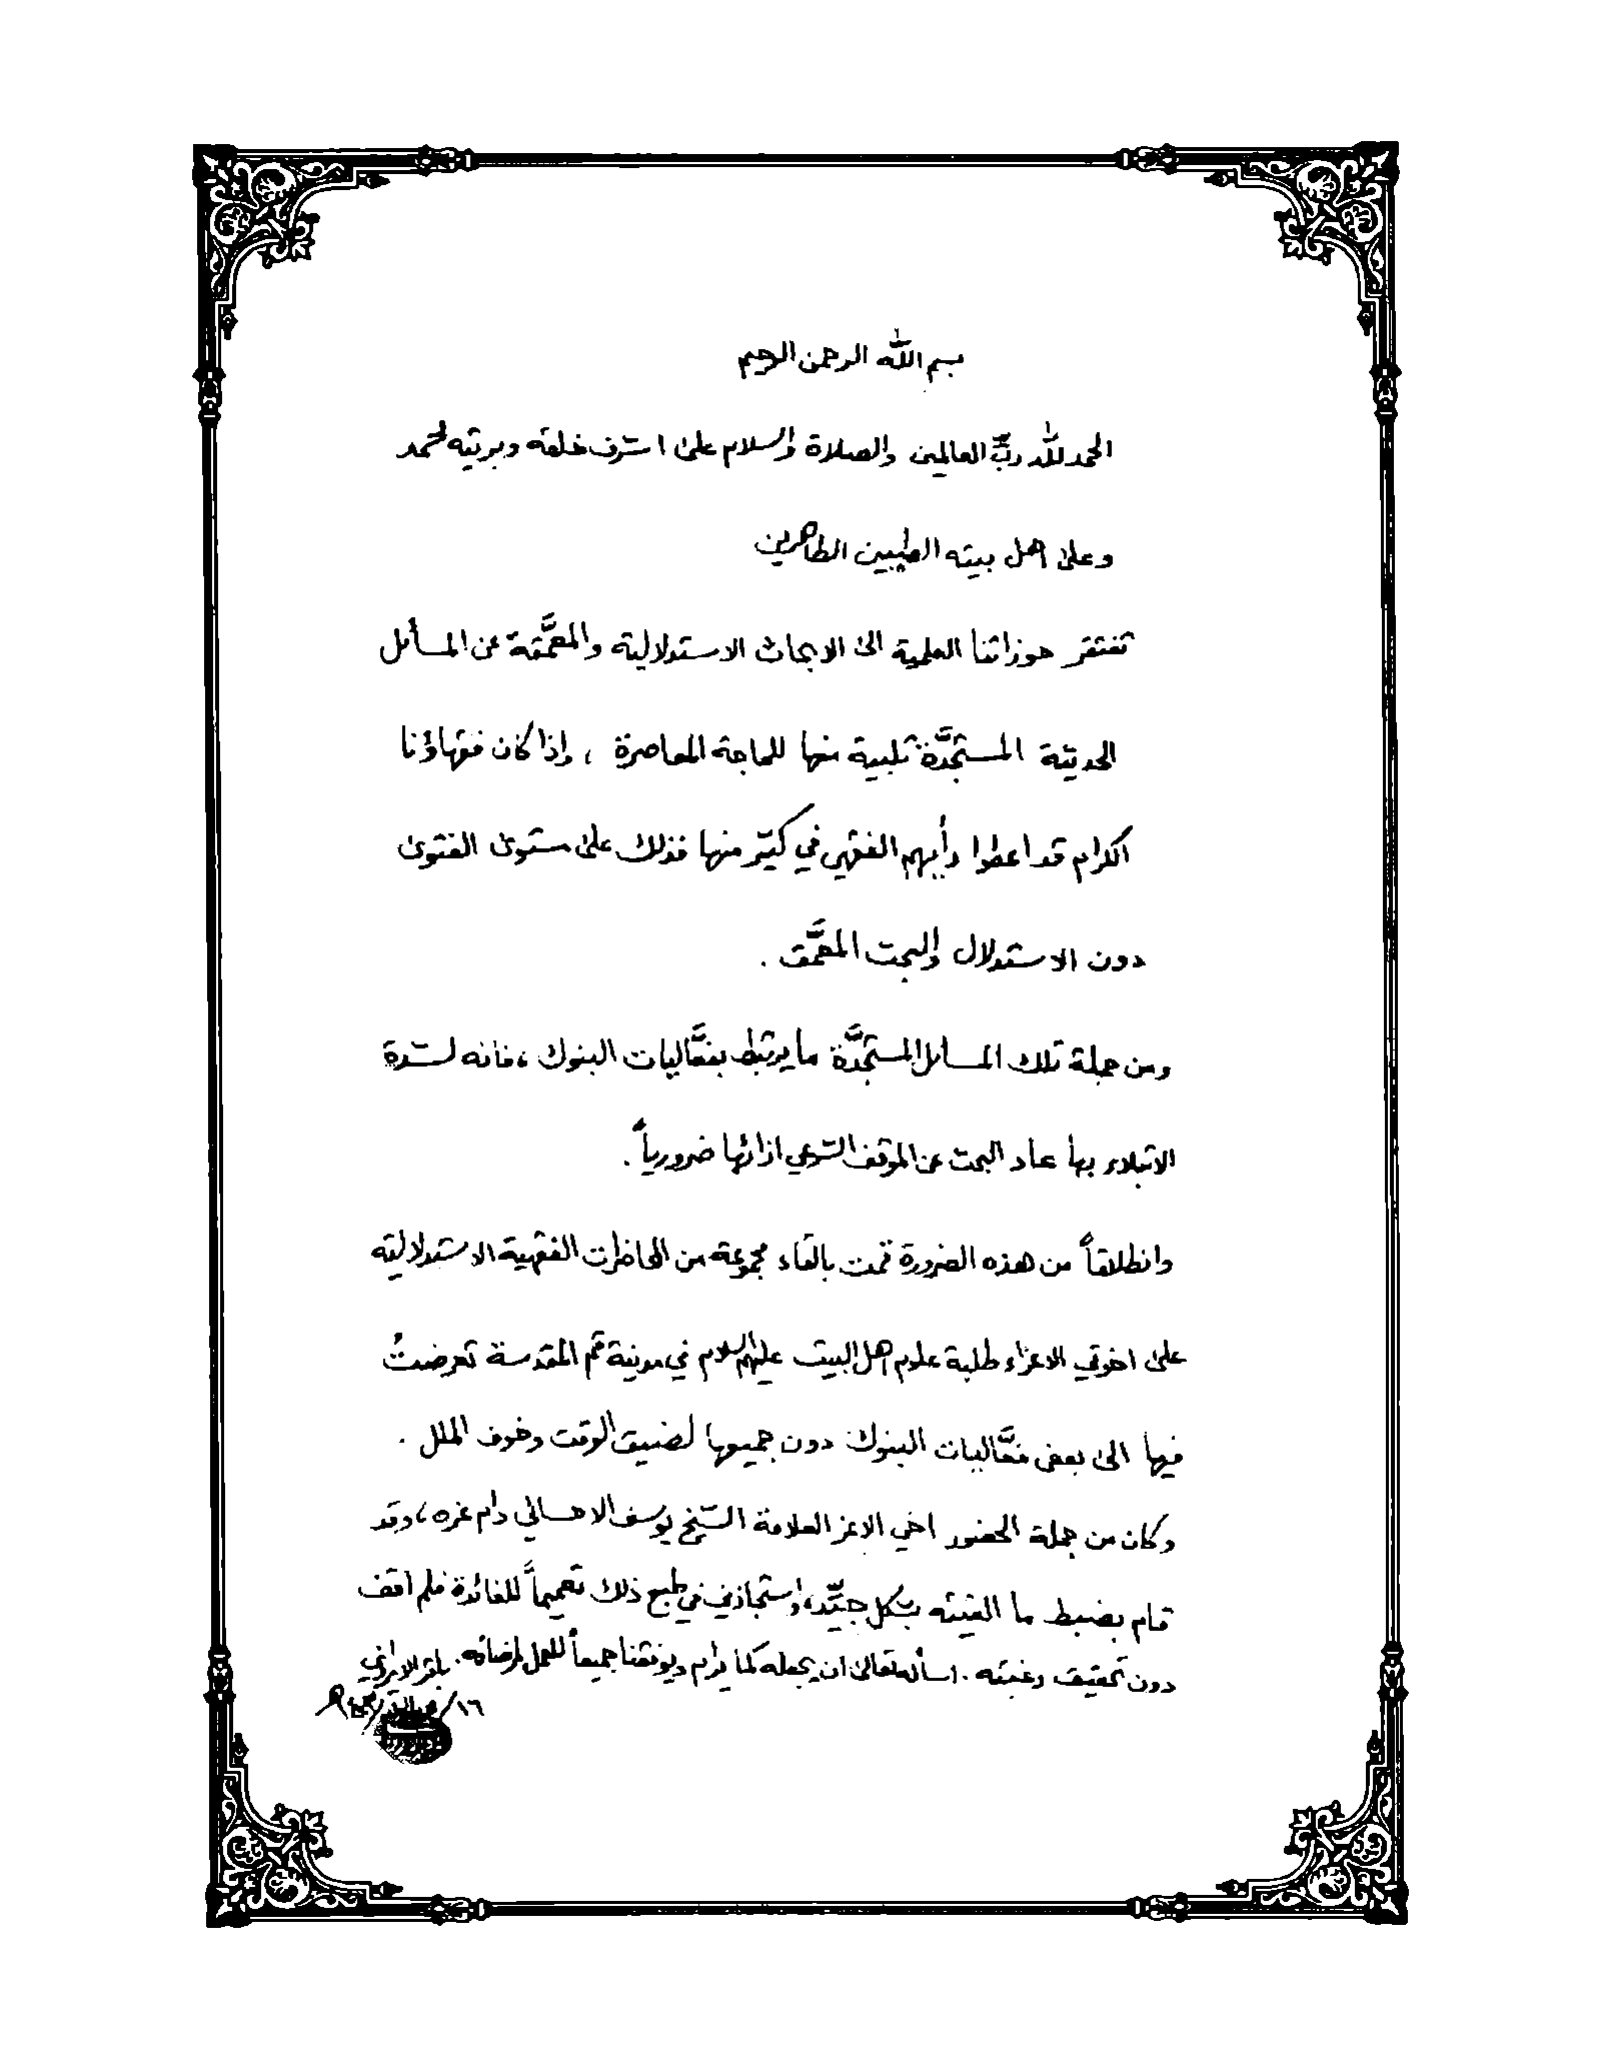 بسم الله الرحمن الرحيم
الحمد لله ربّ العالمين والصلاة والسلام على اشرف خلقه وبريته محمد
وعلى اهل بيته الطيبين الطاهرين
تفتقر حوزاتنا العلمية الى الابحاث الاستدلالية والمعمَّقة عن المسائل
الحديثة المستجدَّة تلبية منها للحاجة المعاصرة ، واذا كان فقهاؤنا
الكرام قد اعطوا رأيهم الفقهي في كثير منها فذلك على مستوى الفتوى
دون الاستدلال والبحث المعمَّق .
ومن جملة تلك المسائل المستجدَّة ما يرتبط بفعَّاليات البنوك ، فانه لشدة
الابتلاء بها عاد البحث عن الموقف الشرعي ازائها ضرورياً .
وانطلاقاً من هذه الضرورة قمت بالقاء مجموعة من المحاضرات الفقهية الاستدلالية
على اخوتي الاعزاء طلبة علوم اهل البيت عليهم السلام في مدينة قم المقدسة تعرضتُ
فيها الى بعض فعَّاليات البنوك دون جميعها لضيق الوقت وخوف الملل .
وكان من جملة الحضور اخي الاعز العلامة الشيخ يوسف الاحسائي دام عزه ، وقد
قام بضبط ما القيته بشكل جيّد ، واستجازني في طبع ذلك تعميماً للفائدة فلم اقف
دون تحقيق رغبته . اسأله تعالى ان يجعله كما يرام ويوفقنا جميعاً للعمل لمرضاته . باقر الايرواني
١٦/